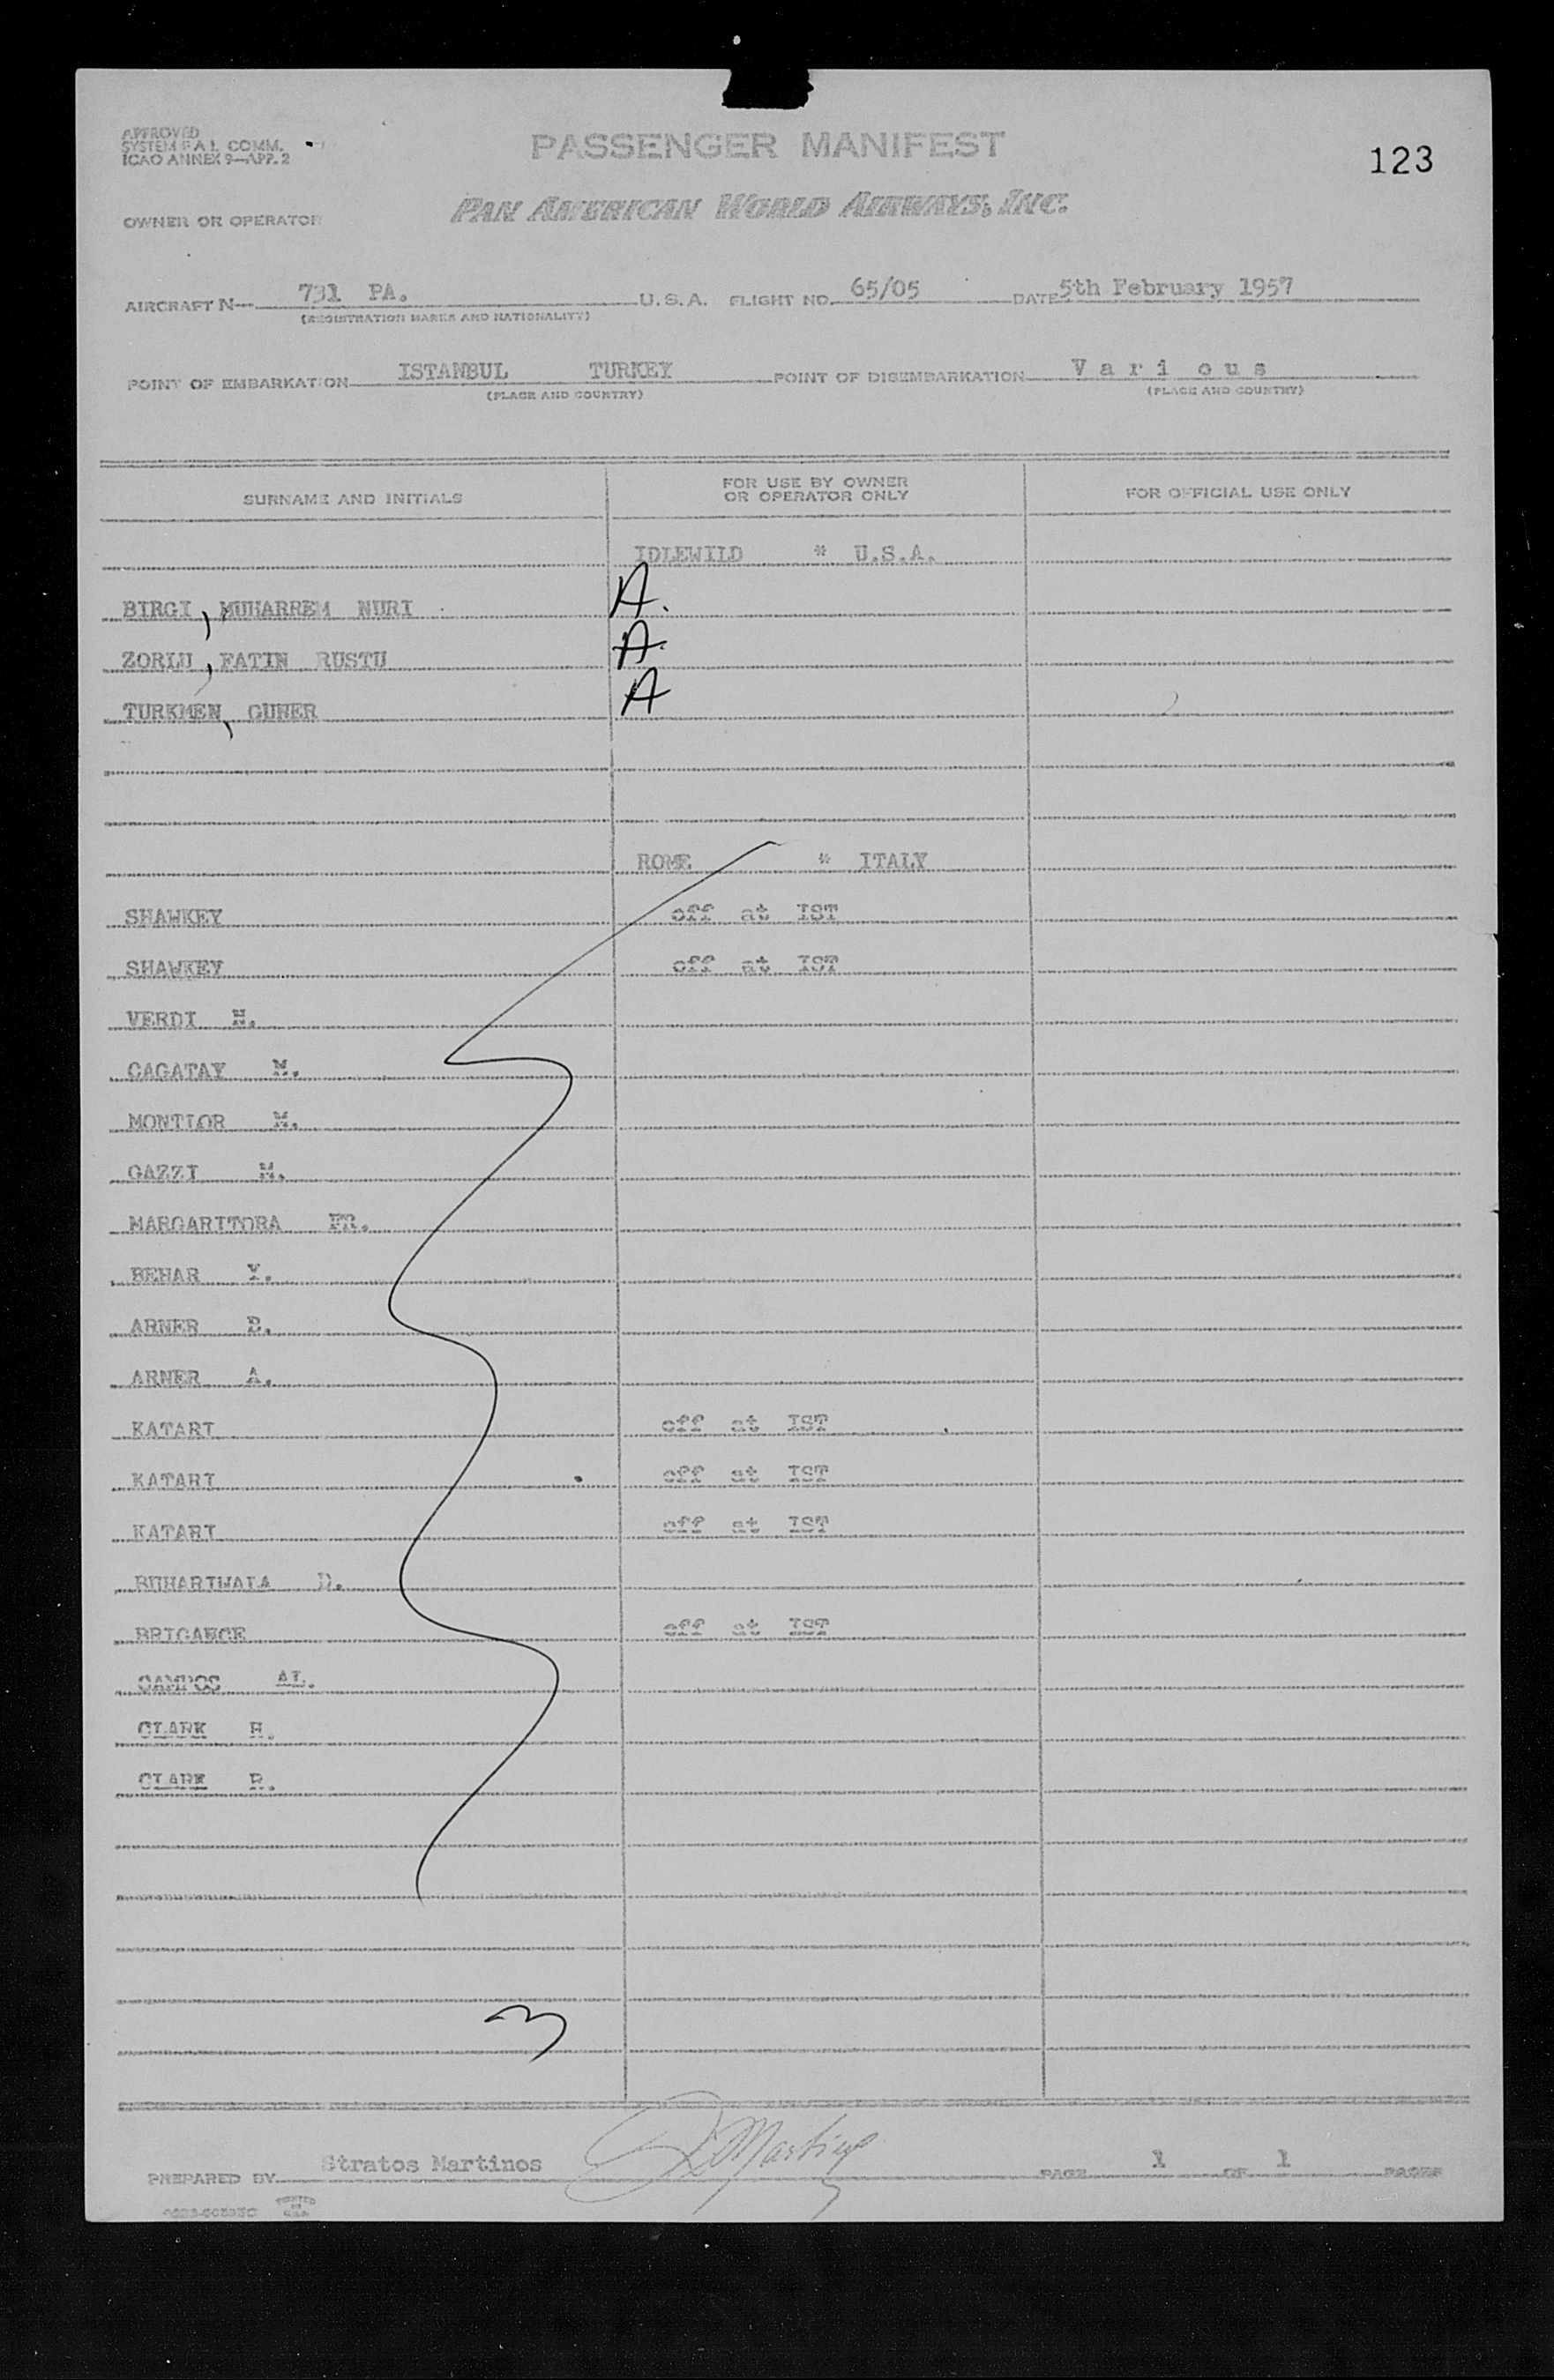 APPROVED
SYSTEM F A L COMM.
ICAO ANNEX 9—APP. 2
PASSENGER MANIFEST
123
OWNER OR OPERATOR
PAN AMERICAN WORLD AIRWAYS, INC.
AIRCRAFT N— 731 PA. U.S.A. FLIGHT NO. 65/05 DATE 5th February 1957
(REGISTRATION MARKS AND NATIONALITY)
POINT OF EMBARKATION ISTANBUL TURKEY POINT OF DISEMBARKATION V a r i o u s
(PLACE AND COUNTRY) (PLACE AND COUNTRY)
SURNAME AND INITIALS FOR USE BY OWNER OR OPERATOR ONLY FOR OFFICIAL USE ONLY
IDLEWILD * U.S.A.
BIRGI, MUHARREM NURI A.
ZORLU, FATIN RUSTU A.
TURKMEN, GUNER A
ROME * ITALY
SHAWKEY off at IST
SHAWKEY off at IST
VERDI
CAGATAY
MONTIOR
GAZZI
MARGARITORA FR.
BEHAR Y.
ARNER B.
ARNER A.
KATARI off at IST
KATARI off at IST
KATARI off at IST
BUHARIWALA D.
BRIGANCE off at IST
CAMPOS AL.
CLARK H.
CLARK R.
3
PREPARED BY Stratos Martinos S Martinos PAGE 1 OF 1 PAGES
PRINTED IN U.S.A.